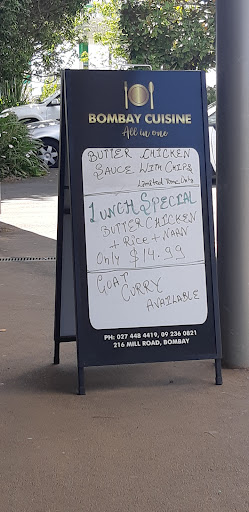 BOMBAY CUISINE
All in one
BUTTER CHICKEN
SAUCE WITH CHIPS
Limited Time Only
LUNCH SPECIAL
BUTTER CHICKEN
+ RICE + NAAN
Only $14.99
GOAT
CURRY
AVAILABLE
PH: 027 448 4419, 09 236 0821
216 MILL ROAD, BOMBAY